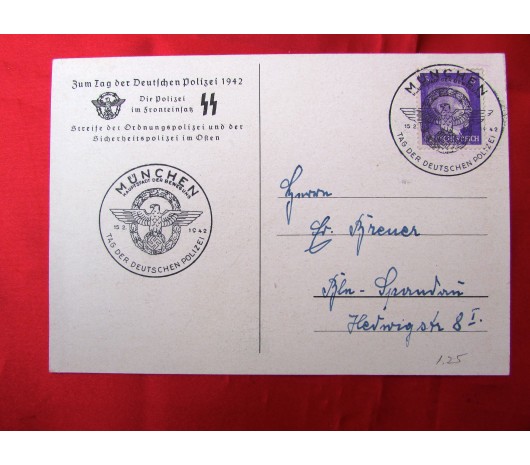 Zum Tag der Deutschen Polizei 1942
Die Polizei
im Fronteinsatz
SS
Streife der Ordnungspolizei und der
Sicherheitspolizei im Osten
MÜNCHEN
HAUPTSTADT DER BEWEGUNG
15.2. 1942
TAG DER DEUTSCHEN POLIZEI
MÜNCHEN
15.2 1942
TAG DER DEUTSCHEN POLIZEI
Herrn
Breuer
Bln-Spandau
Hedwigstr 8 I.
1.25